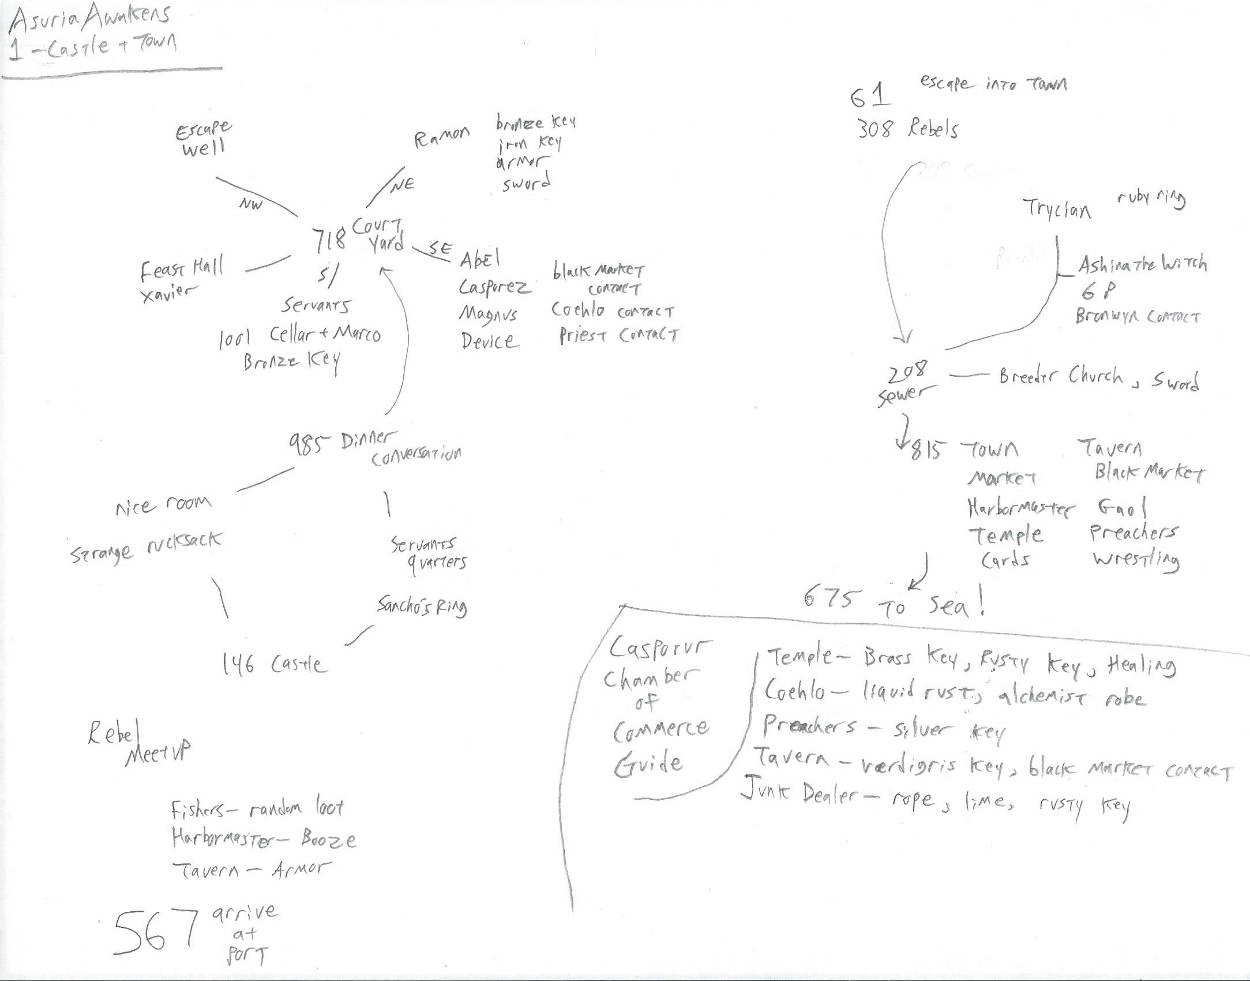 Asuria Awakens
1 - Castle + Town
Escape
well
NW
Ramon
bronze key
iron key
armor
sword
NE
718 Court
Yard
SE
Feast Hall
Xavier
S/
Servants
1001 Cellar + Marco
Bronze Key
Abel
Casporez
Magnus
Device
black market
contact
Coehlo contact
Priest contact
985 Dinner
conversation
Nice room
Strange rucksack
Servants
quarters
Sancho's Ring
146 Castle
Rebel
Meetup
Fishers - random loot
Harbormaster - Booze
Tavern - Armor
567 arrive
at
port
61 escape into town
308 Rebels
Tryclan ruby ring
Ashina the Witch
6P
Bronwyn contact
208
sewer
Breeder Church, sword
815 Town
Market
Harbormaster
Temple
Cards
Tavern
Black Market
Gaol
Preachers
Wrestling
675 To Sea!
Casporur
Chamber
of
Commerce
Guide
Temple - Brass Key, Rusty Key, Healing
Coehlo - liquid rust, alchemist robe
Preachers - silver key
Tavern - verdigris key, black market contact
Junk Dealer - rope, lime, rusty key